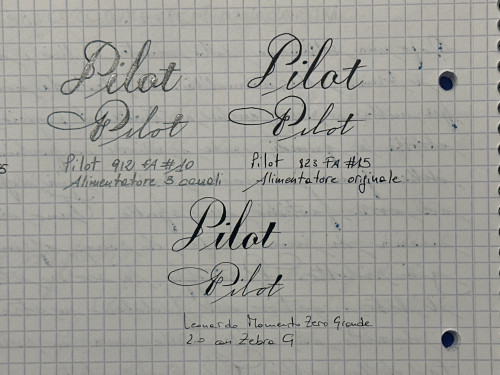 Pilot
Pilot
Pilot 912 FA #10
Alimentatore 3 canali
Pilot
Pilot
Pilot 823 FA #15
Alimentatore originale
Pilot
Pilot
Leonardo Momento Zero Grande
2.0 con Zebra G